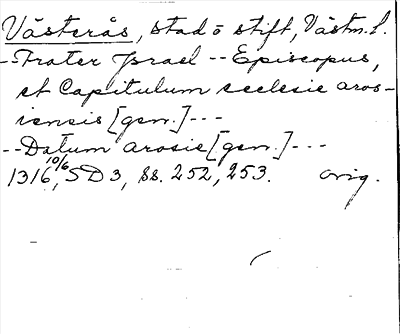 Västerås, stad o stift, Västm. l.
-Frater Israel -- Episcopus,
et Capitulum ecclesie aros-
iensis [gen.] ---
--Datum arosie [gen.] ---
1316 10/6, SD 3, ss. 252, 253. orig.